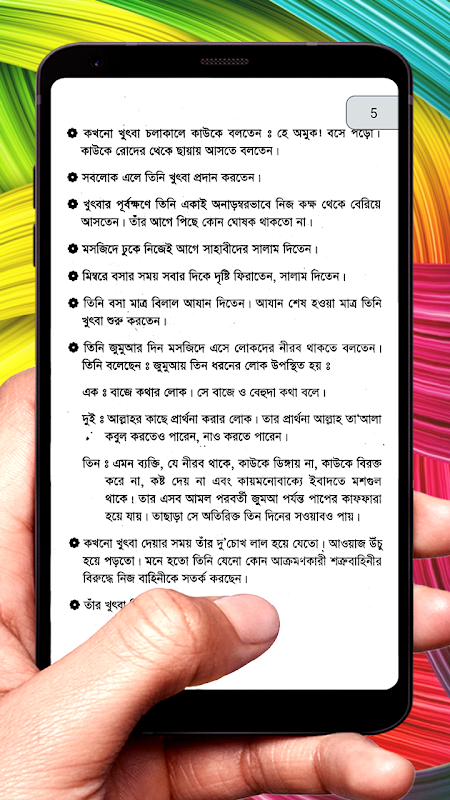 5
কখনো খুৎবা চলাকালে কাউকে বলতেন ঃ হে অমুক! বসে পড়ো।
কাউকে রোদের থেকে ছায়ায় আসতে বলতেন।
সবলোক এলে তিনি খুৎবা প্রদান করতেন।
খুৎবার পূর্বক্ষণে তিনি একাই অনাড়ম্বরভাবে নিজ কক্ষ থেকে বেরিয়ে
আসতেন। তাঁর আগে পিছে কোন ঘোষক থাকতো না।
মসজিদে ঢুকে নিজেই আগে সাহাবীদের সালাম দিতেন।
মিম্বরে বসার সময় সবার দিকে দৃষ্টি ফিরাতেন, সালাম দিতেন।
তিনি বসা মাত্র বিলাল আযান দিতেন। আযান শেষ হওয়া মাত্র তিনি
খুৎবা শুরু করতেন।
তিনি জুমুআর দিন মসজিদে এসে লোকদের নীরব থাকতে বলতেন।
তিনি বলেছেন ঃ জুমুআয় তিন ধরনের লোক উপস্থিত হয় ঃ
এক ঃ বাজে কথার লোক। সে বাজে ও বেহুদা কথা বলে।
দুই ঃ আল্লাহর কাছে প্রার্থনা করার লোক। তার প্রার্থনা আল্লাহ তা'আলা
কবুল করতেও পারেন, নাও করতে পারেন।
তিন ঃ এমন ব্যক্তি, যে নীরব থাকে, কাউকে ডিঙ্গায় না, কাউকে বিরক্ত
করে না, কষ্ট দেয় না এবং কায়মনোবাক্যে ইবাদতে মশগুল
থাকে। তার এসব আমল পরবর্তী জুমুআ পর্যন্ত পাপের কাফফারা
হয়ে যায়। তাছাড়া সে অতিরিক্ত তিন দিনের সওয়াবও পায়।
কখনো খুৎবা দেয়ার সময় তাঁর দু'চোখ লাল হয়ে যেতো। আওয়াজ উঁচু
হয়ে পড়তো। মনে হতো তিনি যেনো কোন আক্রমণকারী শত্রুবাহিনীর
বিরুদ্ধে নিজ বাহিনীকে সতর্ক করছেন।
তাঁর খুৎবা